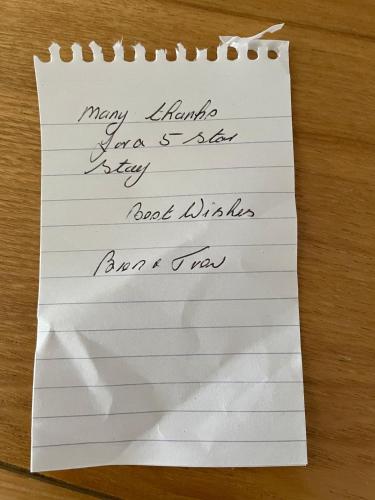 Many thanks
for a 5 star
stay
Best Wishes